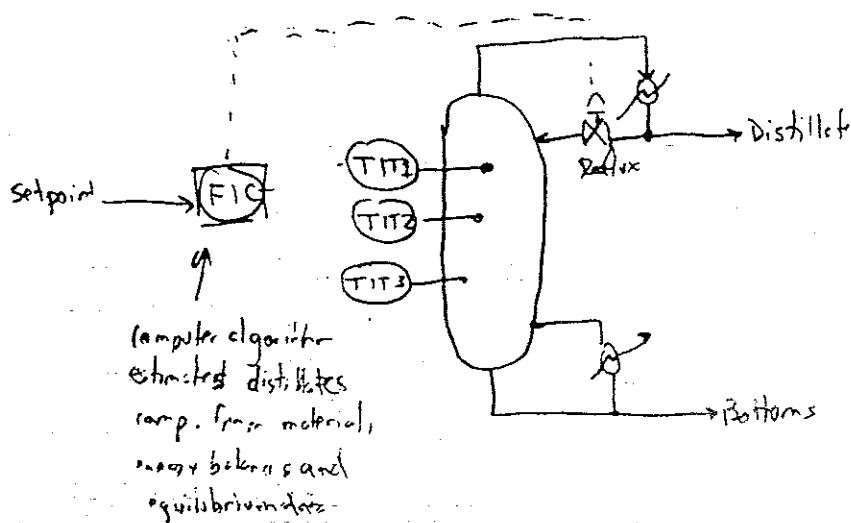 Setpoint
FIC
TIT1
TIT2
TIT3
Distillate
Reflux
Bottoms
computer algorithm
estimates distillates
comp. from material,
energy balances and
equilibrium data